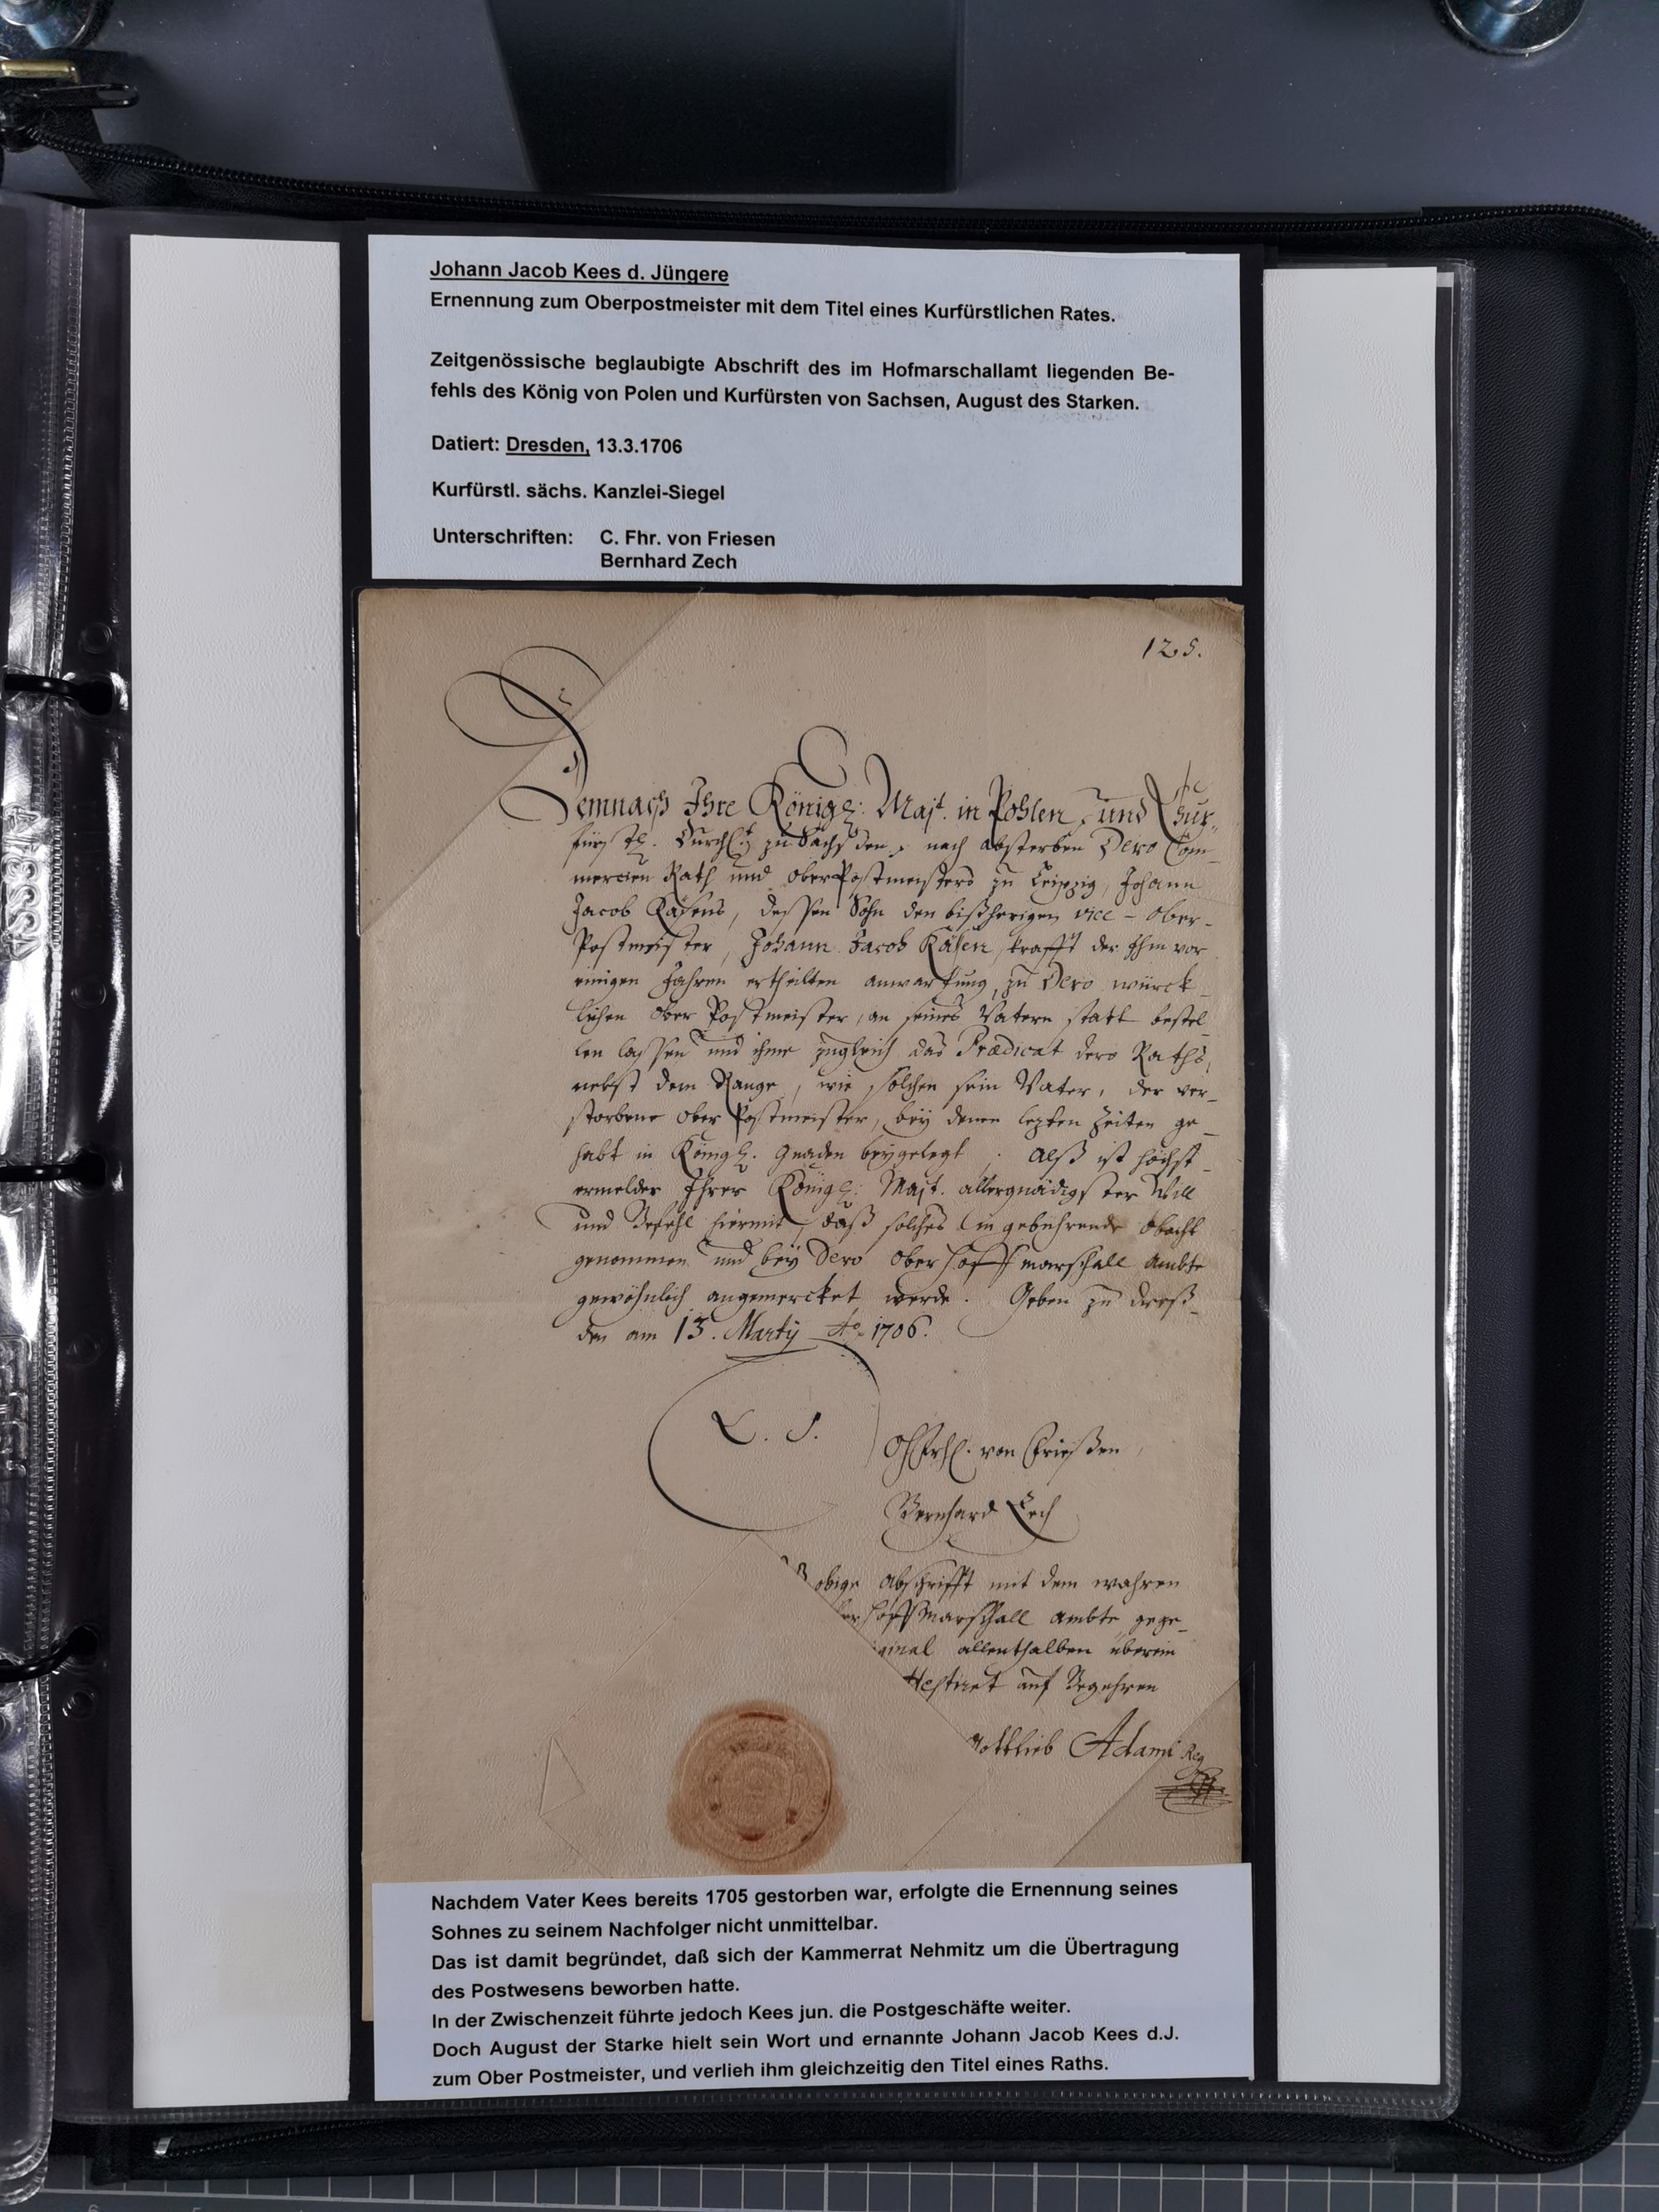 Johann Jacob Kees d. Jüngere
Ernennung zum Oberpostmeister mit dem Titel eines Kurfürstlichen Rates.
Zeitgenössische beglaubigte Abschrift des im Hofmarschallamt liegenden Be-
fehls des König von Polen und Kurfürsten von Sachsen, August des Starken.
Datiert: Dresden, 13.3.1706
Kurfürstl. sächs. Kanzlei-Siegel
Unterschriften: C. Fhr. von Friesen
Bernhard Zech
125.
Demnach Ihre Königl: Majt. in Pohlen, und Chur-
fürstl. Durchl: zu Sachßen, nach absterben Dero Com-
mercien Rath und ober Postmeisters zu Leipzig, Johann
Jacob Käsens, dessen Sohn den bißherigen vice-ober-
Postmeister, Johann Jacob Käsen, krafft der Ihm vor
einigen Jahren ertheilten anwartung, zu Dero würck-
lichen ober Postmeister, an seines Vatern statt bestel-
len lassen und ihme zugleich das Prædicat dero Raths,
nebst dem Range, wie solchen sein Vater, der ver-
storbene ober Postmeister, bey denen lezten Zeiten ge-
habt in Königl. Gnaden beygelegt; Alß ist höchst-
ermelder Ihrer Königl: Majt. allergnädigster Will
und Befehl hiermit, daß solches in gebührende obacht
genommen und bey Dero ober hoff marschall ambte
gewöhnlich angemercket werde. Geben zu Dreß-
den am 13. Martij Ao. 1706.
L. S.
von Frießen
Bernhard Zech
obige abschrifft mit dem wahren
hoff Marschall ambte gege-
ginal allenthalben überein
attestiret auf Begehren
Gottlieb Adami Reg
Nachdem Vater Kees bereits 1705 gestorben war, erfolgte die Ernennung seines
Sohnes zu seinem Nachfolger nicht unmittelbar.
Das ist damit begründet, daß sich der Kammerrat Nehmitz um die Übertragung
des Postwesens beworben hatte.
In der Zwischenzeit führte jedoch Kees jun. die Postgeschäfte weiter.
Doch August der Starke hielt sein Wort und ernannte Johann Jacob Kees d.J.
zum Ober Postmeister, und verlieh ihm gleichzeitig den Titel eines Raths.